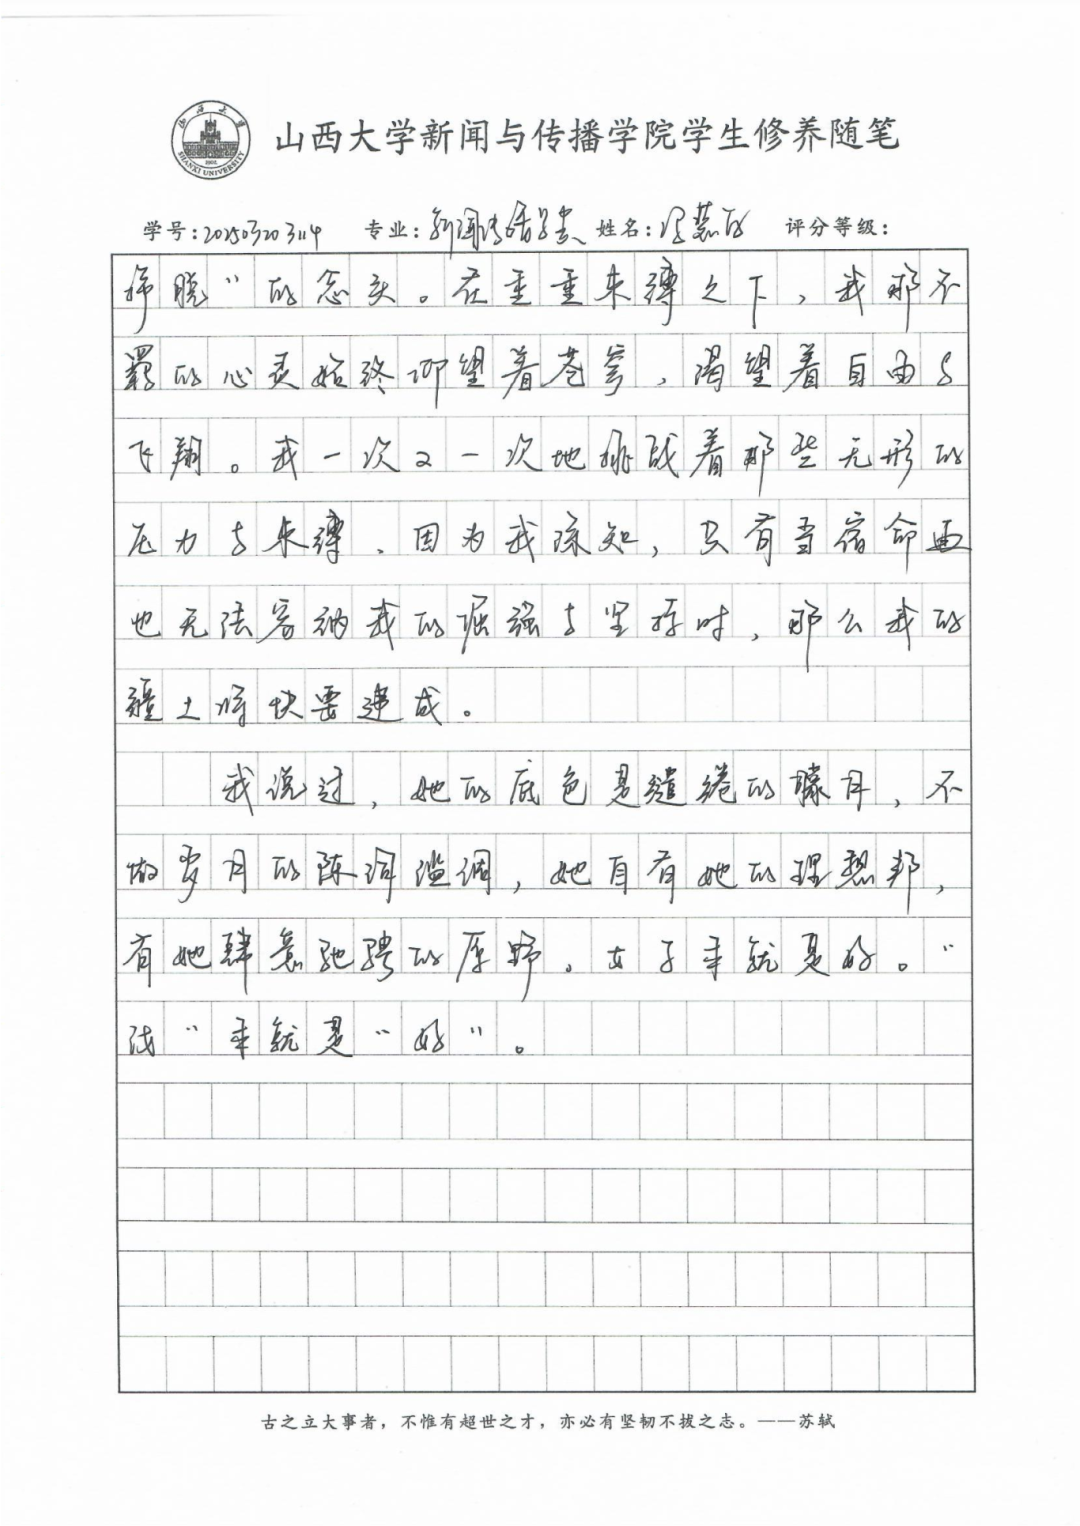 山西大学
SHANXI UNIVERSITY
1902
山西大学新闻与传播学院学生修养随笔
学号: 专业:新闻传播学类 姓名: 评分等级:
破晓”的念头。在重重束缚之下，我那不
羁的心灵始终仰望着苍穹，渴望着自由与
飞翔。我一次又一次地挑战着那些无形的
压力与束缚，因为我深知，只有当宿命再
也无法容纳我的倔强与坚持时，那么我的
疆土将快要建成。
我说过，她的底色是缱绻的朦月，不
做岁月的陈词滥调，她自有她的理想邦，
有她肆意驰骋的原野。女子本就是好。“
“本就是“好”。
古之立大事者，不惟有超世之才，亦必有坚韧不拔之志。——苏轼